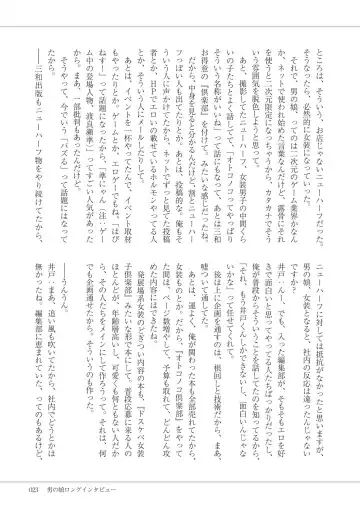 ところは、そういう、お店じゃないニューハーフだった。
そうなったら、必然的に女装になっていった。
それで、男の娘っていうのは二次元のゲーム業界かなんか、ネットで使われ始めた言葉なんだけど、露骨にそれを使うと二次元限定になっちゃうから、カタカナでそういう雰囲気を脱色しようと思って。
あと、撮影してたニューハーフ、女装男子の中間くらいの子たちとよく話してて、「『オトコノコ』ってやっぱりそういう名称がいいね」って話にもなって。あとは三和お得意の『倶楽部』を付けて、みたいな感じだったね。
だから、中身を見ると分かるんだけど、割とニューハーフっぽい人も出てたりとか。あとは、投稿的な、俺もそういう人に声かけてたから、ネットでずっと見てた投稿者とか、HPでエロいの載せているホルモンやってる人とか、そういう人にメールしたりして。
あとは、イベントを一杯やってたんで、イベント取材もやったりとか。ゲームとか、エロゲーでもね、『はぴねす!』って話題になったから、「準にゃん（注：ゲーム中の登場人物、渡良瀬準）」ってすごい人気があったから。まあ、一部批判もあったんだけど。
そうやって、今でいう「バズる」って話題にはなってた。
――三和出版もニューハーフ物をやり続けてたから、
ニューハーフに対しては抵抗がなかったと思いますが、男の娘、女装となると、社内の反応は違ったんじゃないですか？
井戸：んー、でも、入った編集部が、そもそもエロを好きで面白いと思ってやってる人たちばっかりだったし、俺が普段からそういうことを話してたのは知ってるから、「それ、もう井戸くんしかできないし、面白いんじゃないかな」って任せてくれて。
後は上に企画を通すのは、根回しと技術だから、まあ、嘘ついて通してた。
あとは、運よく、俺が関わった本が結構売れてたんで。女装ものとか。だから、『オトコノコ倶楽部』をやってた間は、ページ数増やして、予算も取れて、どんどん攻めた内容にはできてたね。
発展場系女装のどぎつい内容の本も、『ドスケベ女装子倶楽部』みたいな形で本にして。普段応募に来る人のほとんどが、年齢層高いし、可愛くも何ともない人だから、その人たちをメインにして作ろうって。それは、何でも企画通せたから。そういうのも作った。
――うんうん。
井戸：まあ、追い風も吹いてたから、社内でどうとは無かったね。編集部に恵まれていた、ってのもあるけど。
023　男の娘ロングインタビュー